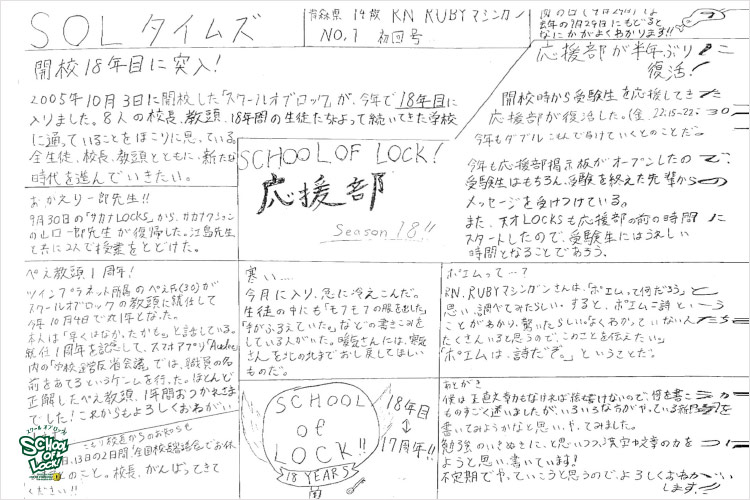 SOLタイムズ
青森県 14歳 RN RUBYマシンガン
NO.1 初回号
去年の9月29日にもどると
なにかがよくわかります!!
開校18年目に突入!
2005年10月3日に開校した「スクールオブロック」が、今年で18年目に
入りました。8人の校長、教頭、18年間の生徒たちによって続いてきた学校
に通っていることをほこりに思っている
全生徒、校長、教頭とともに、新たな
時代を進んでいきたい。
応援部が半年ぶりに
復活!
開校時から受験生を応援してきた
応援部が復活した。(金 22:15~22:30
今年もダブル こもんでぬけていくとのことだ。
今年も応援部掲示板がオープンしたので、
受験生はもちろん、受験を終えた先輩からの
メッセージを受けつけている。
また、天才LOCKSも応援部の前の時間に
スタートしたので、受験生にはうれしい
時間となることであろう。
SCHOOL OF LOCK!
応援部
Season 18!!
おかえり一郎先生!!
9月30日の「サカナLOCKS」から、サカナクション
の山口一郎先生が復帰した。江島先生
と共に2人で授業をとどけた。
ぺえ教頭1周年!
ツインプラネット所属のぺえ氏(30)が
スクールオブロックの教頭に就任して
今年10月4日で1年となった。
本人は「早くはなか、たかも。」と話している。
就任1周年を記念して、スマホアプリ「AuDee」
内の「学校運営反省会議」では、職員の名
前をあてるというゲームを行った。ほとんど
正解したぺえ教頭、1年間おつかれさま
でした!これからもよろしくおねがい
こもり校長からのお知らせ
日、13日の2日間、全国校長講話会でお休
のこと。校長、がんばってきて
ください!!
寒い…
今月に入り、急に冷えこんだ。
生徒の中にも「モフモフの服を出した」
「手がふるえていた。」などの書きこみを
している人がいた。暖気さんには、寒気
さんを北の北までおし戻してほしい
ものだ。
SCHOOL
of
LOCK!!
18 YEARS
18年目
17周年!!
ポエムって…?
RN.RUBYマシンガンさんは、「ポエムって何だろう」と
思い、調べてみたらしい。すると、ポエム=詩という
ことがわかり、驚いたらしい。なくわかっていない人たちも
たくさんいると思うので、このことを伝えたい。
「ポエムは、詩だぞ。」ということだ。
あとがき
僕は正直文章力もなければ絵も書けないので、何を書こう
ものすごく迷いましたが、いろいろな方がやっている新聞を
書いてみようかなと思い、やってみました。
勉強のいきぬきに、と思いつつ、真字や文章の力を
ようと思い、書いています!
不定期でやっていこうと思うので、よろしくおねがい
します!!
スクールオブロック!
SCHOOL
OF
LOCK!